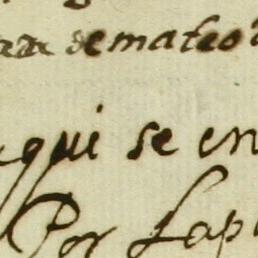 de mateo
aqui se en
Por Lap